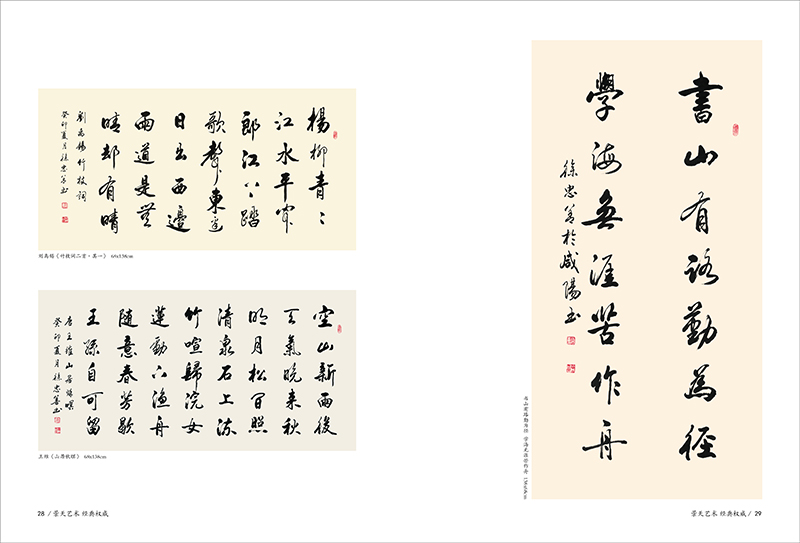 楊柳青〻
江水平聞
郎江上踏
歌聲東邊
日出西邊
雨道是無
晴却有晴
劉禹錫竹枝詞
癸卯夏月徐忠善書
刘禹锡《竹枝词二首·其一》 69x138cm
空山新雨後
天氣晚來秋
明月松間照
清泉石上流
竹喧歸浣女
蓮動下漁舟
隨意春芳歇
王孫自可留
唐王維山居秋暝
癸卯夏月徐忠善書
王维《山居秋暝》 69x138cm
28 / 景天艺术 经典权威
書山有路勤為徑
學海無涯苦作舟
徐忠善於咸陽書
书山有路勤为径 学海无涯苦作舟 138x69cm
景天艺术 经典权威 / 29